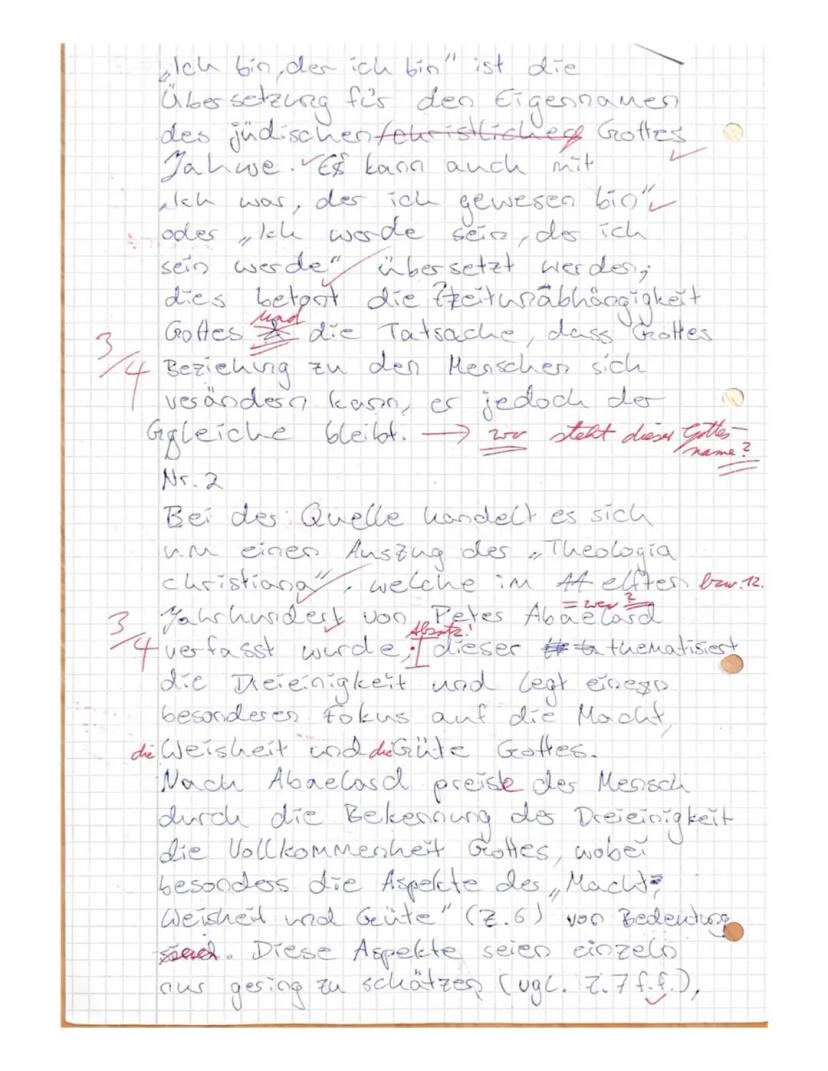 „Ich bin, der ich bin" ist die
Übersetzung für den Eigennamen
des jüdischen/christlichen Gottes
Jahwe. Es kann auch mit
„Ich war, der ich gewesen bin"
oder „Ich werde sein, der ich
sein werde" übersetzt werden;
dies betont die Zeitunabhängigkeit
und
Gottes & die Tatsache, dass Gottes
3/4 Beziehung zu den Menschen sich
verändern kann, er jedoch der
Gleiche bleibt. → wo steht dieser Gottesname?
Nr. 2
Bei der Quelle handelt es sich
um einen Auszug der „Theologia
christiana", welche im 11 elften bzw. 12.
= wer?
Jahrhundert von Peter Abaelard
Absatz!
3/4 verfasst wurde; dieser thematisiert
die Dreieinigkeit und legt einen
besonderen Fokus auf die Macht,
die Weisheit und die Güte Gottes.
Nach Abaelard preise der Mensch
durch die Bekennung der Dreieinigkeit
die Vollkommenheit Gottes, wobei
besonders die Aspekte der „Macht,
Weisheit und Güte" (Z.6) von Bedeutung
seien. Diese Aspekte seien einzeln
nur gering zu schätzen (vgl. Z.7 f.f.),